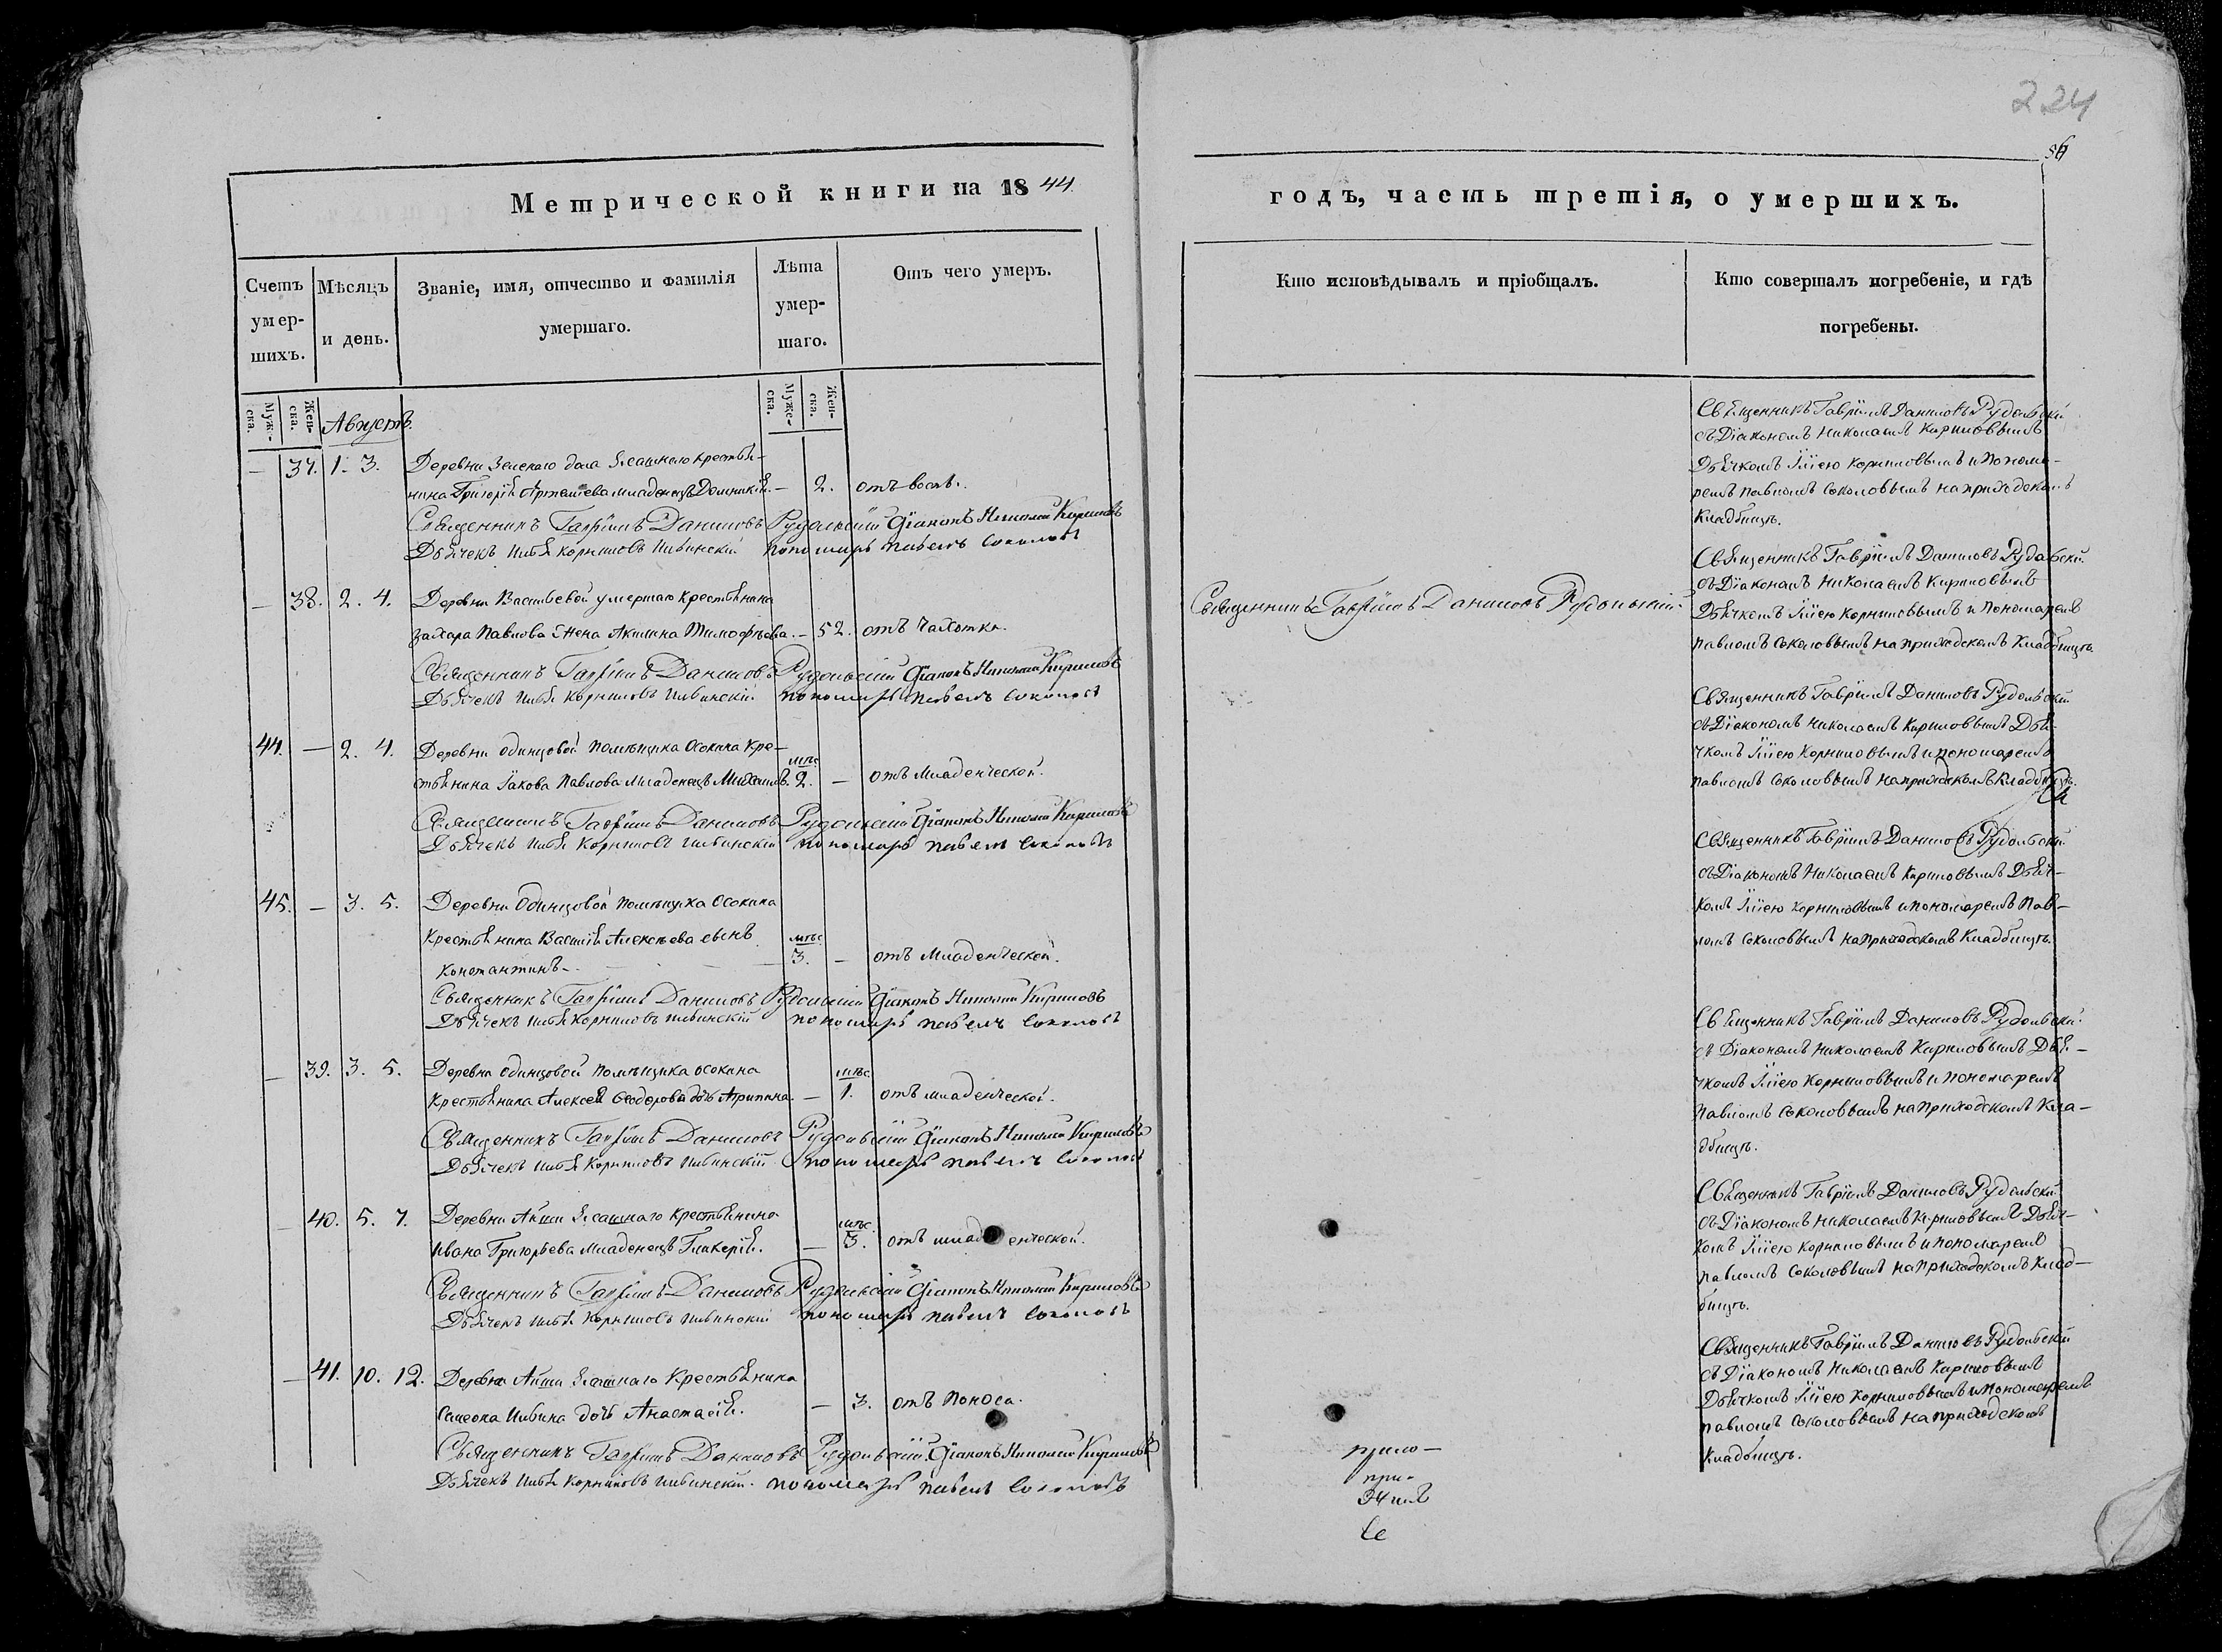 224
56
Метрической книги на 1844
годъ, часть третія, о умершихъ.
Счетъ умершихъ.
Мѣсяцъ и день.
Званіе, имя, отчество и фамилія умершаго.
Лѣта умершаго.
Отъ чего умеръ.
Кто исповѣдывалъ и пріобщалъ.
Кто совершалъ погребеніе, и гдѣ погребены.
Муж-ска.
Жен-ска.
Муже-ска.
Жен-ска.
Августъ.
— 37. 1. 3. Деревни Зеленаго дола Ясашнаго крестья-
нина Григорія Артемьева младенецъ Домникія. — 2. отъ воспы.
Священникъ Гавріилъ Даниловъ Рудольскій Діаконъ Николай Кириловъ
Дьячекъ Илья Корниловъ Ильинскій пономарь Павелъ Соколовъ
Священникъ Гавріилъ Даниловъ Рудольскій
съ Діакономъ Николаемъ Кириловымъ
Дьячкомъ Ильею Корниловымъ и Понома-
ремъ Павломъ Соколовымъ на приходскомъ
Кладбищѣ.
— 38. 2. 4. Деревни Васильевой умершаго крестьянина
Захара Павлова Жена Акилина Тимофѣева. — 52. отъ чахотки.
Священникъ Гавріилъ Даниловъ Рудольскій Діаконъ Николай Кириловъ
Дьячекъ Илья Корниловъ Ильинскій пономарь Павелъ Соколовъ
Священникъ Гавріилъ Даниловъ Рудольскій
Священникъ Гавріилъ Даниловъ Рудольскій
съ Діакономъ Николаемъ Кириловымъ
Дьячкомъ Ильею Корниловымъ и Пономаремъ
Павломъ Соколовымъ на приходскомъ Кладбищѣ.
44. — 2. 4. Деревни Одинцовой помѣщика Осокина Кре-
стьянина Іакова Павлова младенецъ Михаилъ. мѣс. 2. — отъ Младенческой.
Священникъ Гавріилъ Даниловъ Рудольскій Діаконъ Николай Кириловъ
Дьячекъ Илья Корниловъ Ильинскій пономарь Павелъ Соколовъ
Священникъ Гавріилъ Даниловъ Рудольскій
съ Діакономъ Николаемъ Кириловымъ Дья-
чкомъ Ильею Корниловымъ и пономаремъ
Павломъ Соколовымъ на приходскомъ Кладбищѣ.
45. — 3. 5. Деревни Одинцовой помѣщика Осокина
Крестьянина Василія Алексѣева сынъ
Константинъ. мѣс. 3. — отъ Младенческой.
Священникъ Гавріилъ Даниловъ Рудольскій Діаконъ Николай Кириловъ
Дьячекъ Илья Корниловъ Ильинскій пономарь Павелъ Соколовъ
Священникъ Гавріилъ Даниловъ Рудольскій
съ Діакономъ Николаемъ Кириловымъ Дьяч-
комъ Ильею Корниловымъ и пономаремъ Пав-
ломъ Соколовымъ на приходскомъ Кладбищѣ.
— 39. 3. 5. Деревни Одинцовой помѣщика Осокина
Крестьянина Алексея Ѳеодорова дочь Агрипина. — мѣс. 1. отъ младенческой.
Священникъ Гавріилъ Даниловъ Рудольскій Діаконъ Николай Кириловъ
Дьячекъ Илья Корниловъ Ильинскій пономарь Павелъ Соколовъ
Священникъ Гавріилъ Даниловъ Рудольскій
съ Діакономъ Николаемъ Кириловымъ Дья-
чкомъ Ильею Корниловымъ и пономаремъ
Павломъ Соколовымъ на приходскомъ Кла-
дбищѣ.
— 40. 5. 7. Деревни Айши Ясашнаго Крестьянина
Ивана Григорьева младенецъ Гликерія. — мѣс. 3. отъ младенческой.
Священникъ Гавріилъ Даниловъ Рудольскій Діаконъ Николай Кириловъ
Дьячекъ Илья Корниловъ Ильинскій пономарь Павелъ Соколовъ
Священникъ Гавріилъ Даниловъ Рудольскій
съ Діакономъ Николаемъ Кириловымъ Дьяч-
комъ Ильею Корниловымъ и пономаремъ
Павломъ Соколовымъ на приходскомъ Клад-
бищѣ.
— 41. 10. 12. Деревни Айши Ясашнаго Крестьянина
Симеона Ильина дочь Анастасія. — 3. отъ Поноса.
Священникъ Гавріилъ Даниловъ Рудольскій Діаконъ Николай Кириловъ
Дьячекъ Илья Корниловъ Ильинскій. пономарь Павелъ Соколовъ
Священникъ Гавріилъ Даниловъ Рудольскій
съ Діакономъ Николаемъ Кириловымъ
Дьячкомъ Ильею Корниловымъ и пономаремъ
Павломъ Соколовымъ на приходскомъ
Кладбищѣ.